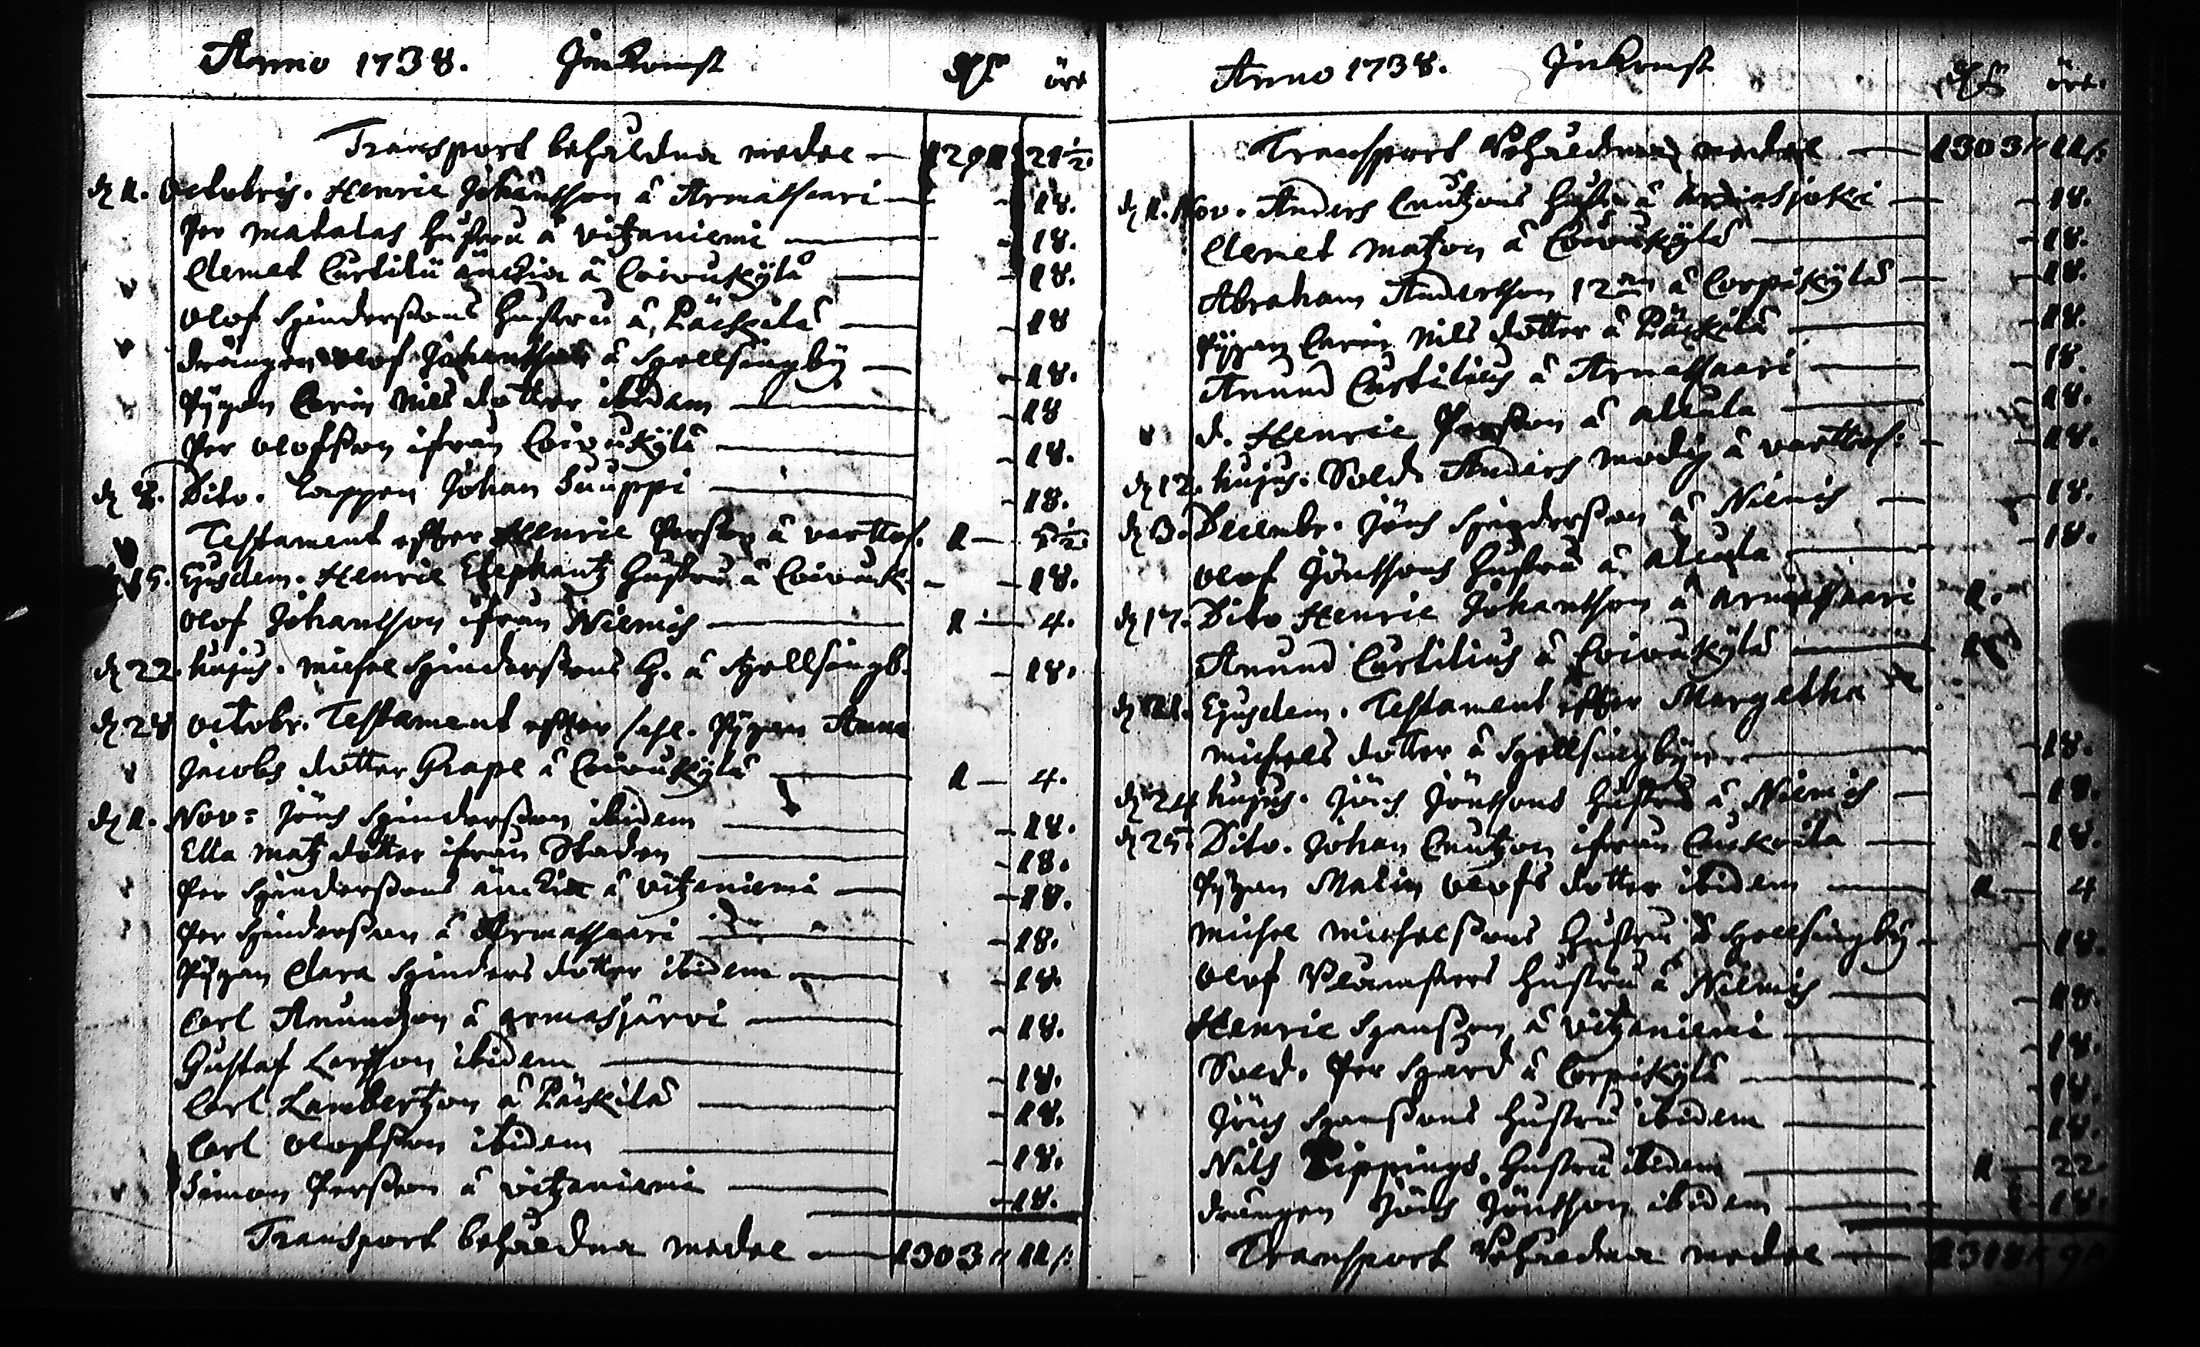 Anno 1738. Jnkomst öre
Transport behåldna medel — 1291 21½.
d. 1. Octobris. Henric Johansson å Armassaari — 18.
Per Matalas hustru å Vitzaniemi — 18.
Clemet Curtilii änckia å Coivukylä — 18.
Olof Hindersons hustru å Päckilä — 18
drängen Olof Johansson å Hellsingby — 18.
Pigan Carin Nils dotter ibidem — 18
Per Olofsson ifrån Coivukylä — 18.
Dito. Lappen Johan Suuppi — 18.
Testament efter Henric Persson å 1 — 5½.
Ejusdem. Henric Elephantz hustru å Coivuk. — 18.
Olof Johansson ifrån Niemis — 1 — 4.
d. 22. hujus. Michel Hindersons h. å Hellsingb. — 18.
d. 28 Octobr. Testament efter sahl. Pigan Anna
Jacobs dotter Grape å Coivukylä — 1 — 4.
d. 1. Nov: Jöns Hinderson ibidem — 18.
Ella Matz dotter ifrån Staden — 18.
Per Hindersons änckia å Vitzaniemi — 18.
Per Hinderson å Armassaari — 18.
Pigan Clara Hinders dotter ibidem — 18.
Carl Anundzon å Armasjärvi — 18.
Gustaf Larsson ibidem — 18.
Carl Lambertzon å Päckilä — 18.
Carl Olofsson ibidem — 18.
Simon Persson å Vitzaniemi — 18.
Transport behåldna medel — 1303 11
Anno 1738. Jnkomst öre.
Transport behåldna medel — 1303 11
d. 1. Nov. Anders Cnutzons hustru å — 18.
Clemet Matzon å Coivukylä — 18.
Abraham Andersson 12 å Corpikylä — 18.
Pigan Carin Nils dotter å Päckilä — 18.
Anund Curtilius å Armassaari — 18.
d. Henric Persson å Alcula — 18.
d. 12. hujus. Sold. Anders Modig å — 18.
d. 3. Decembr. Jöns Hinderson å Niemis — 18.
Olof Jönssons hustru å Alcula — 18.
d. 17. Dito Henric Johansson å Armassaari 1.
Anund Curtilius å Coivukylä —
d. 21. Ejusdem. Testament efter Margetha
Michels dotter å Hellsingbyn — 18.
d. 24 hujus. Jöns Jönssons hustru å Niemis — 18.
d. 25. Dito. Johan Cnutzon ifrån — 18.
Pigan Malin Olofs dotter ibidem — 1 — 4
Michel Michelsons hustru å Hellsingby — 18.
Olof hustru å Niemis — 18.
Henric Hansson å Vitzaniemi — 18.
Sold. Per Hård å Corpikylä — 18.
Jöns Hanssons hustru ibidem — 18.
Nils Pippings hustru ibidem — 1 — 22
drängen Jöns Jönsson ibidem — 18.
Transport behåldna medel — 1318 9